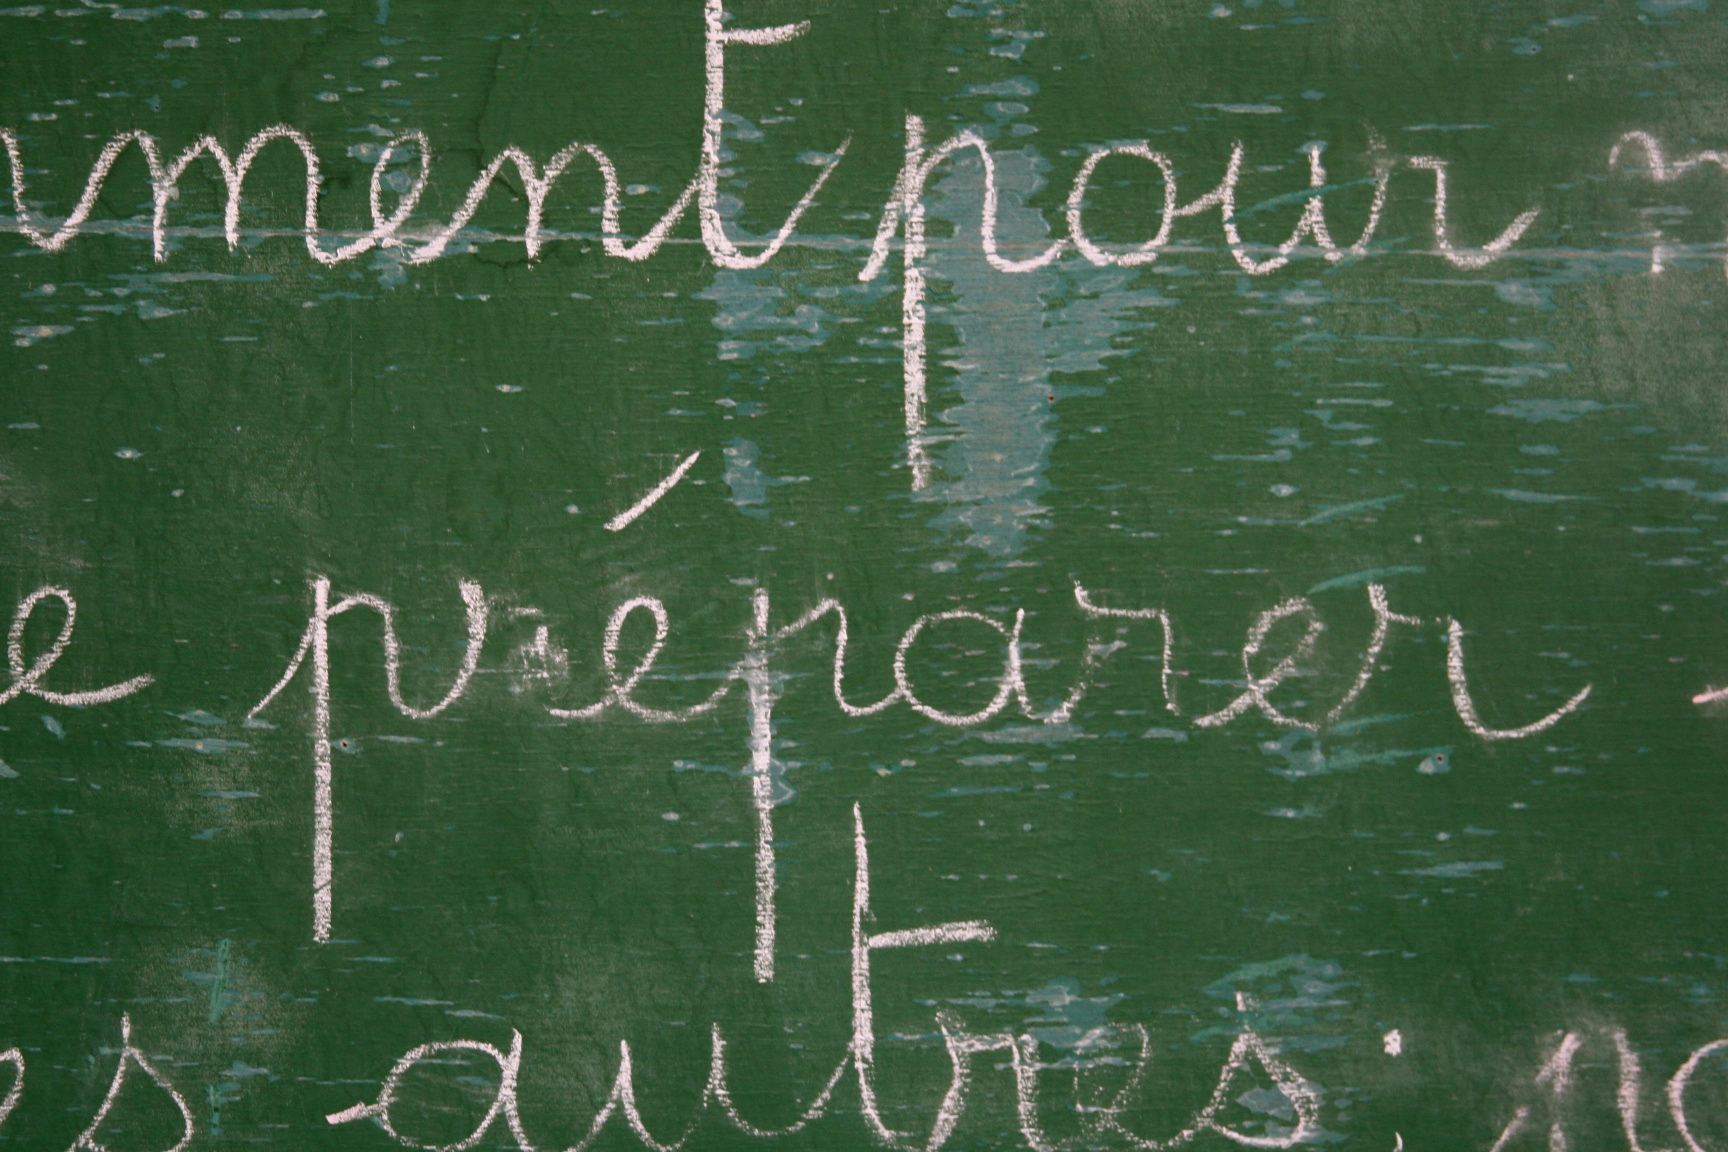 ment pour
e préparer
es autres; no